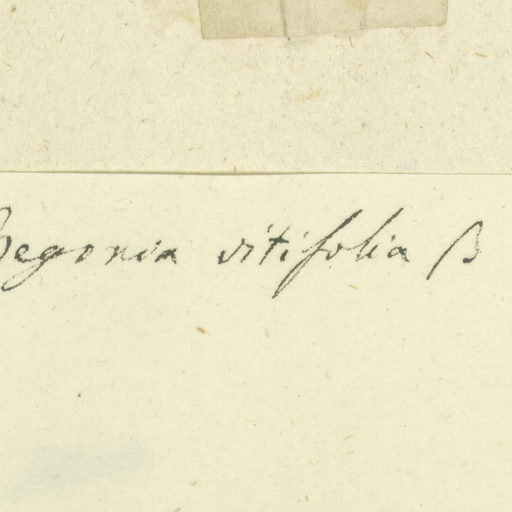 Begonia vitifolia β